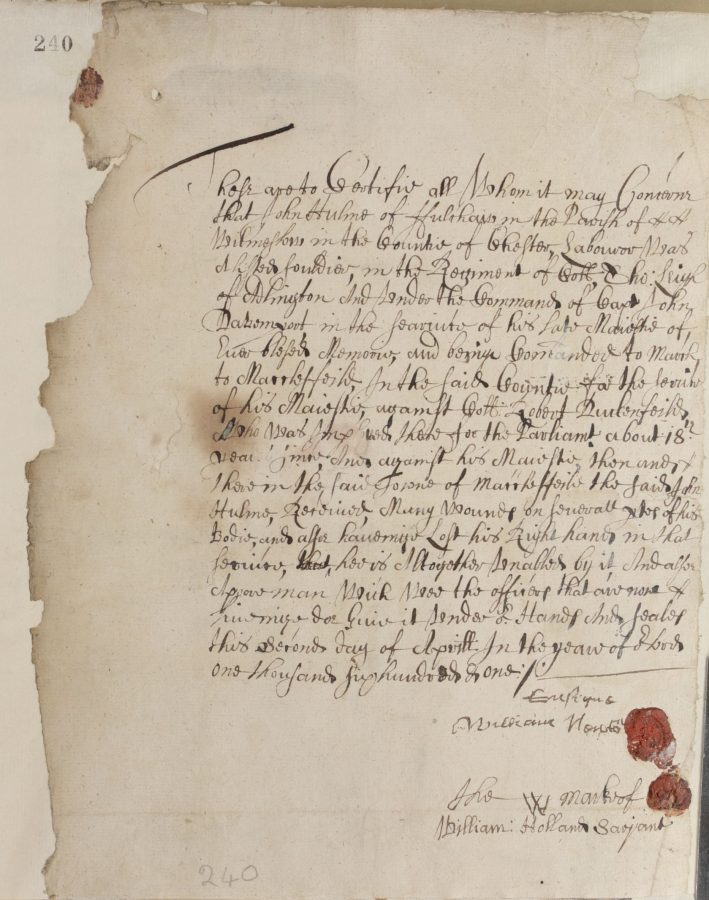 240
These are to Certifie all Whom it may Concerne
that John Hulme of ffulshaw in the Parish of
Wilmeslow in the Countie of Chester, Labourer Was
A Listed souldier, in the Regiment of Coll: Tho: Ligh
of Adlington And Under the Command of Capt John
Davenport in the searvice of his Late Maiestie of
Ever blessed Memorie, and beinge Comanded to March
to Maccleffeild, In the said Countie for the service
of his Maiestie, against Coll: Robert Duckenfeild
Who Was there for the Parliamt about 18th
yeares since, And against his Maiestie, then and
there in the said Towne of Maccleffeild the said John
Hulme, Received, Many Wounds on severall ptes of his
bodie, and alsoe haveinge Lost his Right hand in that
service, hee is Altogether Unabled by it And alsoe
A poore man Wich Wee the officers that are now
liveinge doe Give it Under or Hands And seales
this Second day of Aprill In the yeare of or Lord
one thousand six hundred & one:/:
Ensigne
William
the W marke of
William: Holland Sarjant
240